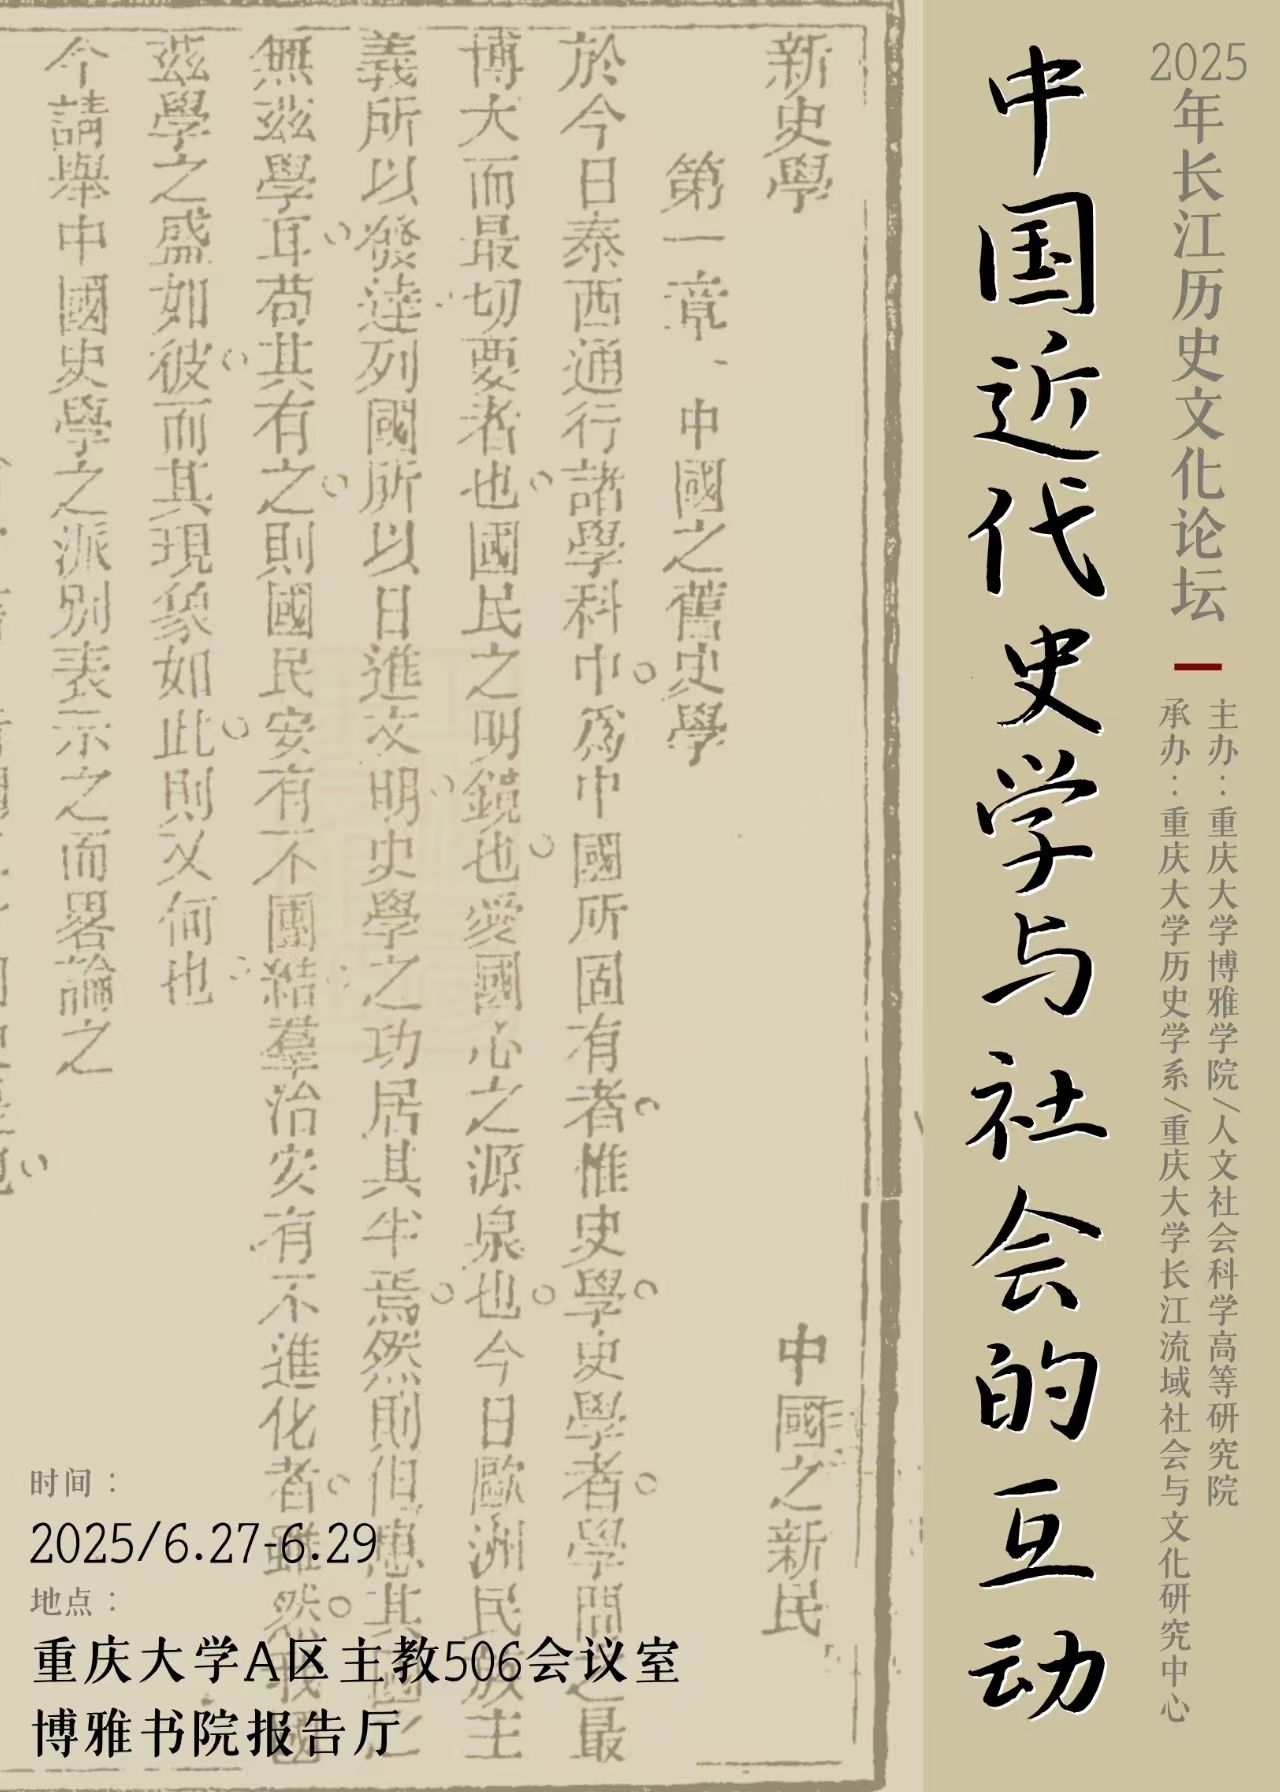 2025年长江历史文化论坛
主办：重庆大学博雅学院/人文社会科学高等研究院
承办：重庆大学历史学系/重庆大学长江流域社会与文化研究中心
中国近代史学与社会的互动
新史學
中國之新民
第一章、中國之舊史學
於今日泰西通行諸學科中。爲中國所固有者。惟史學。史學者。學問之最
博大而最切要者也。國民之明鏡也。愛國心之源泉也。今日歐洲民族主
義所以發達、列國所以日進文明、史學之功居其半焉。然則但患其國之
無茲學耳、苟其有之。則國民安有不團結、羣治安有不進化者。雖然。我國
茲學之盛如彼。而其現象如此。則又何也
今請舉中國史學之派別表示之而畧論之
时间：
2025/6.27-6.29
地点：
重庆大学A区主教506会议室
博雅书院报告厅